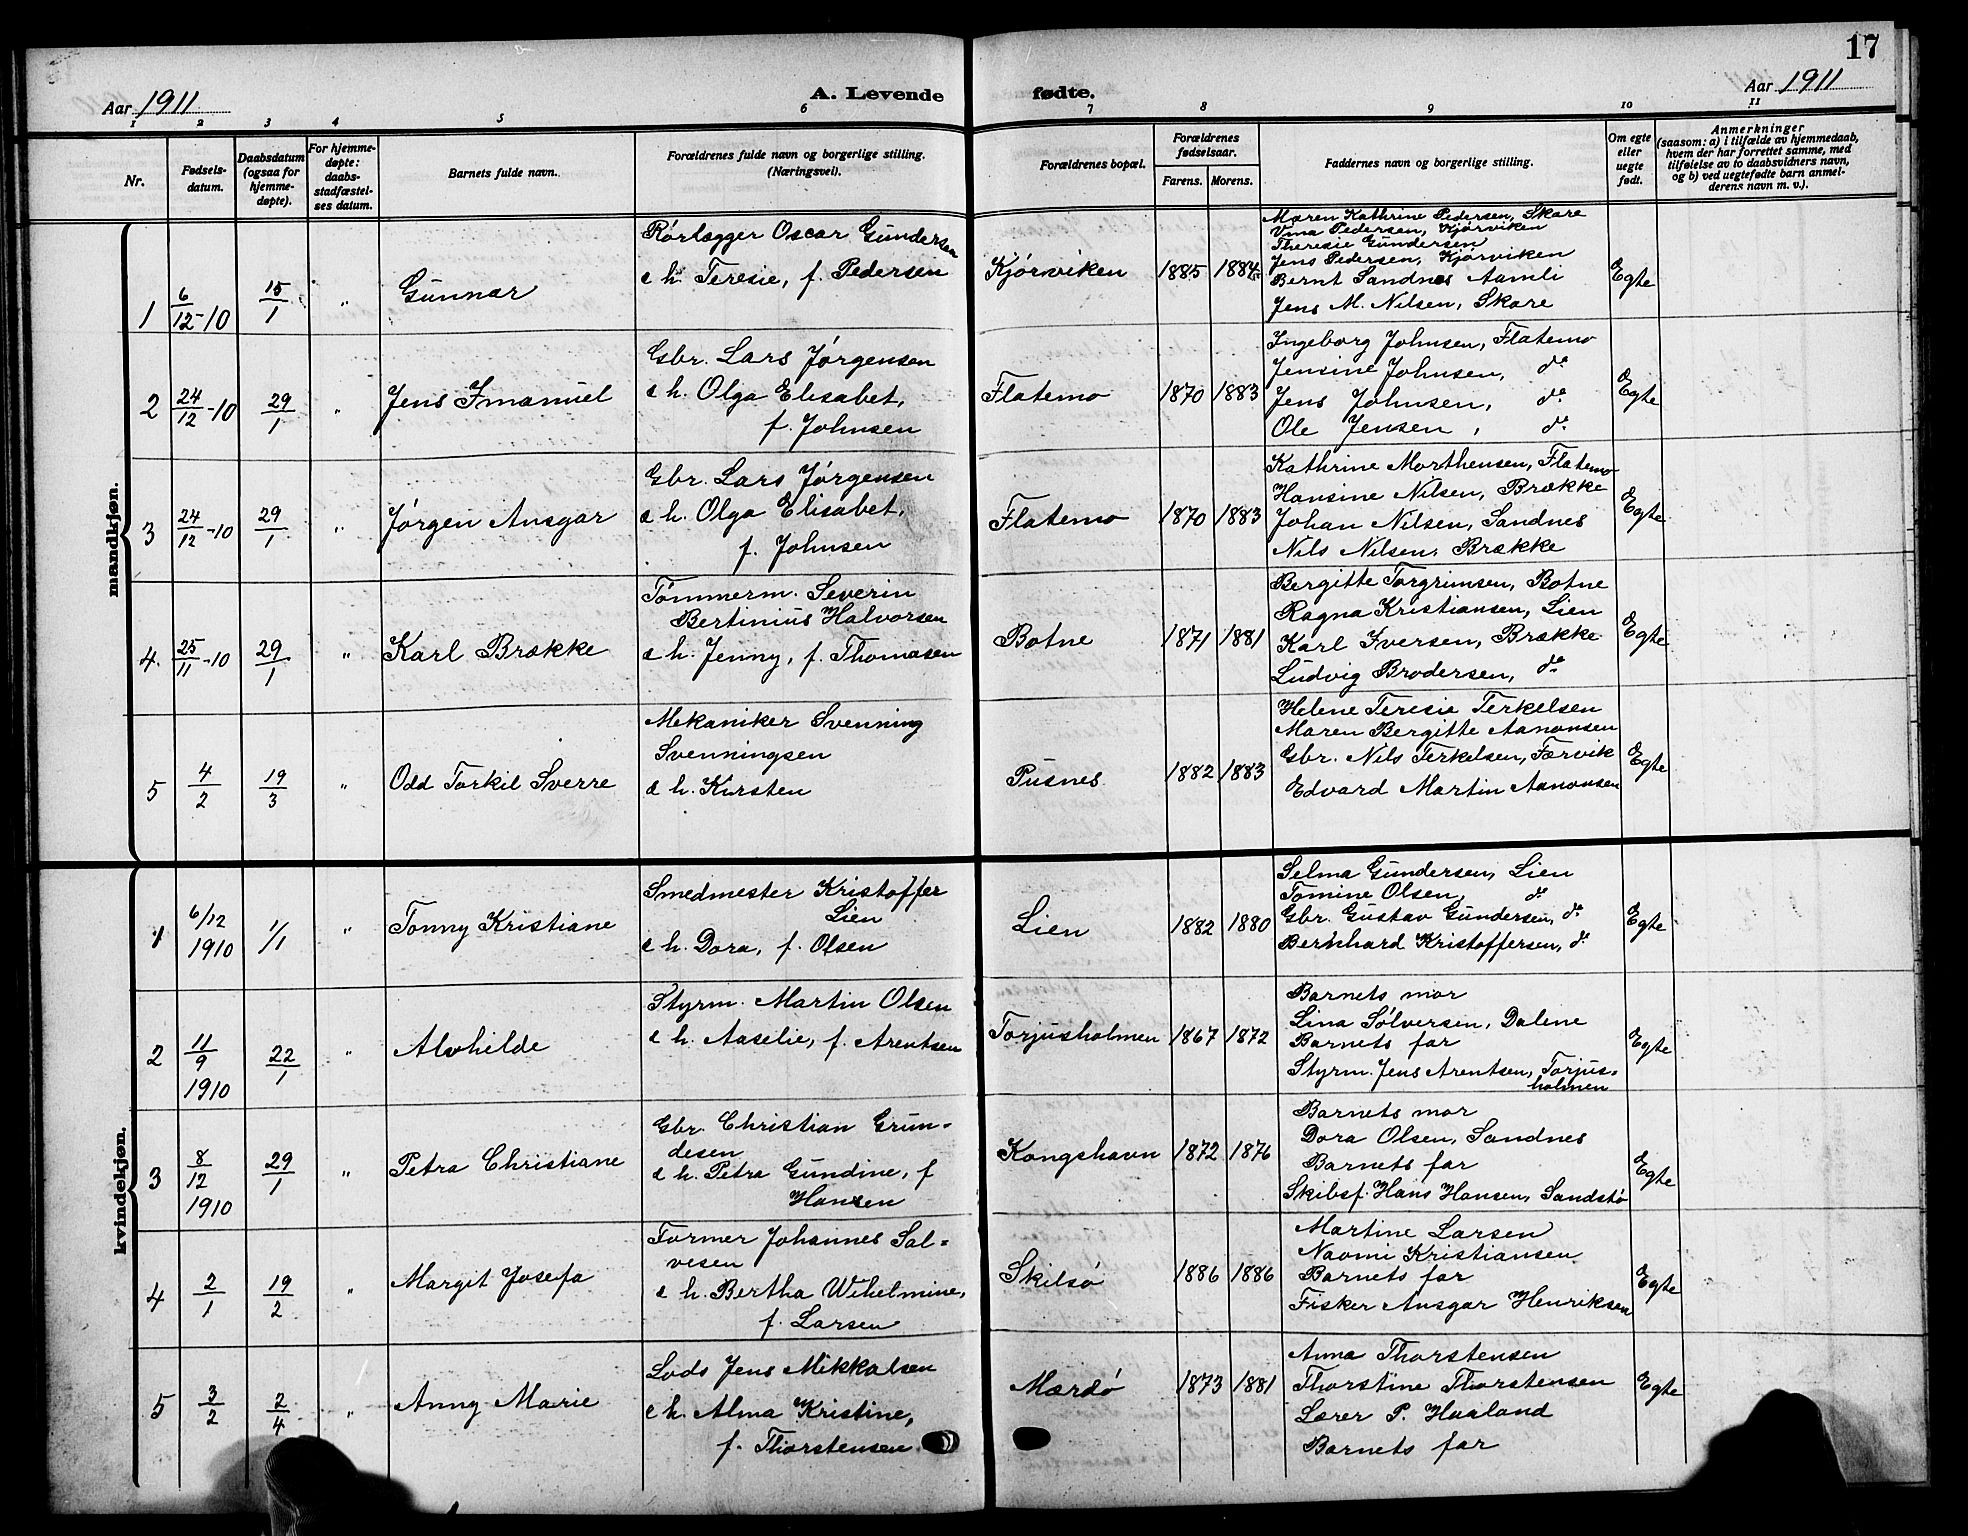 17
Aar 1911
A. Levende fødte.
Aar 1911
1 2 3 4 5 6 7 8 9 10 11
Nr.
Fødsels-
datum.
Daabsdatum
(ogsaa for
hjemme-
døpte).
For hjemme-
døpte:
daabs-
stadfæstel-
ses datum.
Barnets fulde navn.
Forældrenes fulde navn og borgerlige stilling.
(Næringsvei).
Forældrenes bopæl.
Forældrenes
fødselsaar.
Farens. Morens.
Faddernes navn og borgerlige stilling.
Om egte
eller
uegte
født.
Anmerkninger
(saasom: a) i tilfælde av hjemmedaab,
hvem der har forrettet samme, med
tilføielse av to daabsvidners navn,
og b) ved uegtefødte barn anmel-
derens navn m. v.).
mandkjøn.
1 6/12-10 15/1 " Gunnar
Rørlægger Oscar Gundersen
& h. Teresie, f. Pedersen
Kjørviken 1885 1884
Maren Kathrine Pedersen, Skare
Vma Pedersen, Kjørviken
Theresie Gundersen
Jens Pedersen, Kjørviken
Bernt Sandnes Aamli
Jens M. Nilsen, Skare
Egte
2 24/12-10 29/1 " Jens Imanuel
Gbr. Lars Jørgensen
& h. Olga Elisabet,
f. Johnsen
Flatemo 1870 1883
Ingeborg Johnsen, Flatemo
Jensine Johnsen, do
Jens Johnsen, do
Ole Jensen, do
Egte
3 24/12-10 29/1 " Jørgen Ansgar
Gbr. Lars Jørgensen
& h. Olga Elisabet,
f. Johnsen
Flatemo 1870 1883
Kathrine Morthensen, Flatemo
Hansine Nilsen, Brække
Johan Nilsen, Sandnes
Nils Nilsen, Brække
Egte
4. 25/11-10 29/1 " Karl Brække
Tømmerm. Severin
Bertinius Halvorsen
& h. Jenny, f. Thomasen
Botne 1871 1881
Bergitte Torgrimsen, Botne
Ragna Kristiansen, Lien
Karl Iversen, Brække
Ludvig Brodersen, do
Egte
5 4/2 19/3 " Odd Torkil Sverre
Mekaniker Svenning
Svenningsen
& h. Kirsten
Pusnes 1882 1883
Helene Teresie Terkelsen
Maren Bergitte Aanonsen
Gbr. Nils Terkelsen, Færvik
Edvard Martin Aanonsen
Egte
kvindekjøn.
1 6/12 1910 1/1 " Tonny Kristiane
Smedmester Kristoffer
Lien
& h. Dora, f. Olsen
Lien 1882 1880
Selma Gundersen, Lien
Tomine Olsen, do
Gbr. Gustav Gundersen, do
Bernhard Kristoffersen, do
Egte
2 11/9 1910 22/1 " Alvhilde
Styrm. Martin Olsen
& h. Aaselie, f. Arentsen
Torjusholmen 1867 1872
Barnets mor
Lina Sølversen, Dalene
Barnets far
Styrm. Jens Arentsen, Torjus-
holmen
Egte
3 8/12 1910 29/1 " Petra Christiane
Gbr. Christian Grun-
desen
& h. Petra Gundine, f
Hansen
Kongshavn 1872 1876
Barnets mor
Dora Olsen, Sandnes
Barnets far
Skibsf. Hans Hansen, Sandstø
Egte
4 2/1 19/2 " Margit Josefa
Former Johannes Sal-
vesen
& h. Bertha Wihelmine,
f. Larsen
Skilsø 1886 1886
Martine Larsen
Naomi Kristiansen
Barnets far
Fisker Ansgar Henriksen
Egte
5 3/2 2/4 " Anny Marie
Lods Jens Mikkalsen
& h. Alma Kristine,
f. Thorstensen
Mærdø 1873 1881
Anna Thorstensen
Thorstine Thorstensen
Lærer P. Haaland
Barnets far
Egte